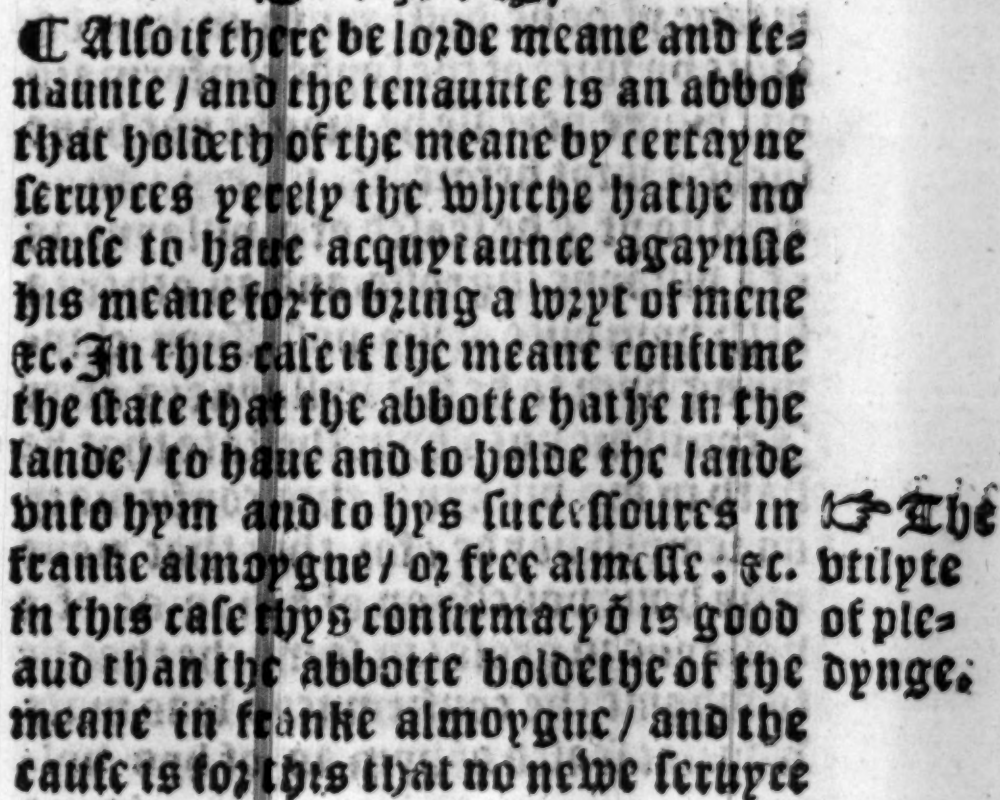 ¶ Also if there be lorde meane and te⸗
naunte / and the tenaunte is an abbot
that holdeth of the meane by certayne
seruyces yerely the whiche hathe no
cause to haue acquytaunce agaynste
his meane for to bring a wryt of mene
⁊c. In this case if the meane confirme
the state that the abbotte hathe in the
lande / to haue and to holde the lande
vnto hym and to hys successoures in
franke almoygne / or free almesse . ⁊c.
in this case thys confirmacyō is good
and than the abbotte holdethe of the
meane in franke almoygne / and the
cause is for this that no newe seruyce
☞ The
vtilyte
of ple⸗
dynge.